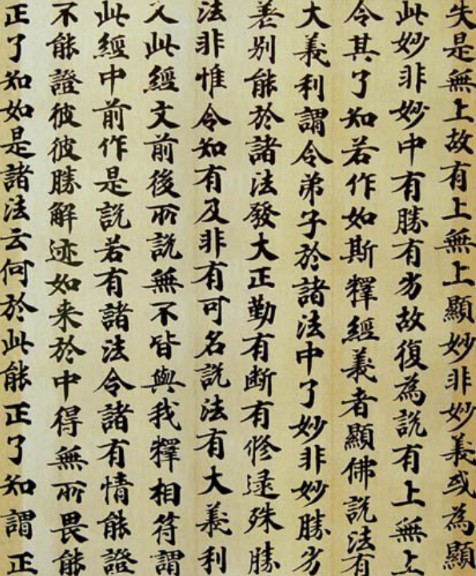 失是無上故有上無上顯妙非妙義或為顯
此妙非妙中有勝有劣故復為說有上無上
令其了知若作如斯釋經義者顯佛說法有
大義利謂令弟子於諸法中了妙非妙勝劣
差別能於諸法發大正勤有断有修逮殊勝
法非惟令知有及非有可名説法有大義利
又此經文前後所説無不皆與我釋相符謂
此經中前作是説若有諸法令諸有情能證
不能證彼彼勝解迹如来於中得無所畏能
正了知如是諸法云何於此能正了知謂正